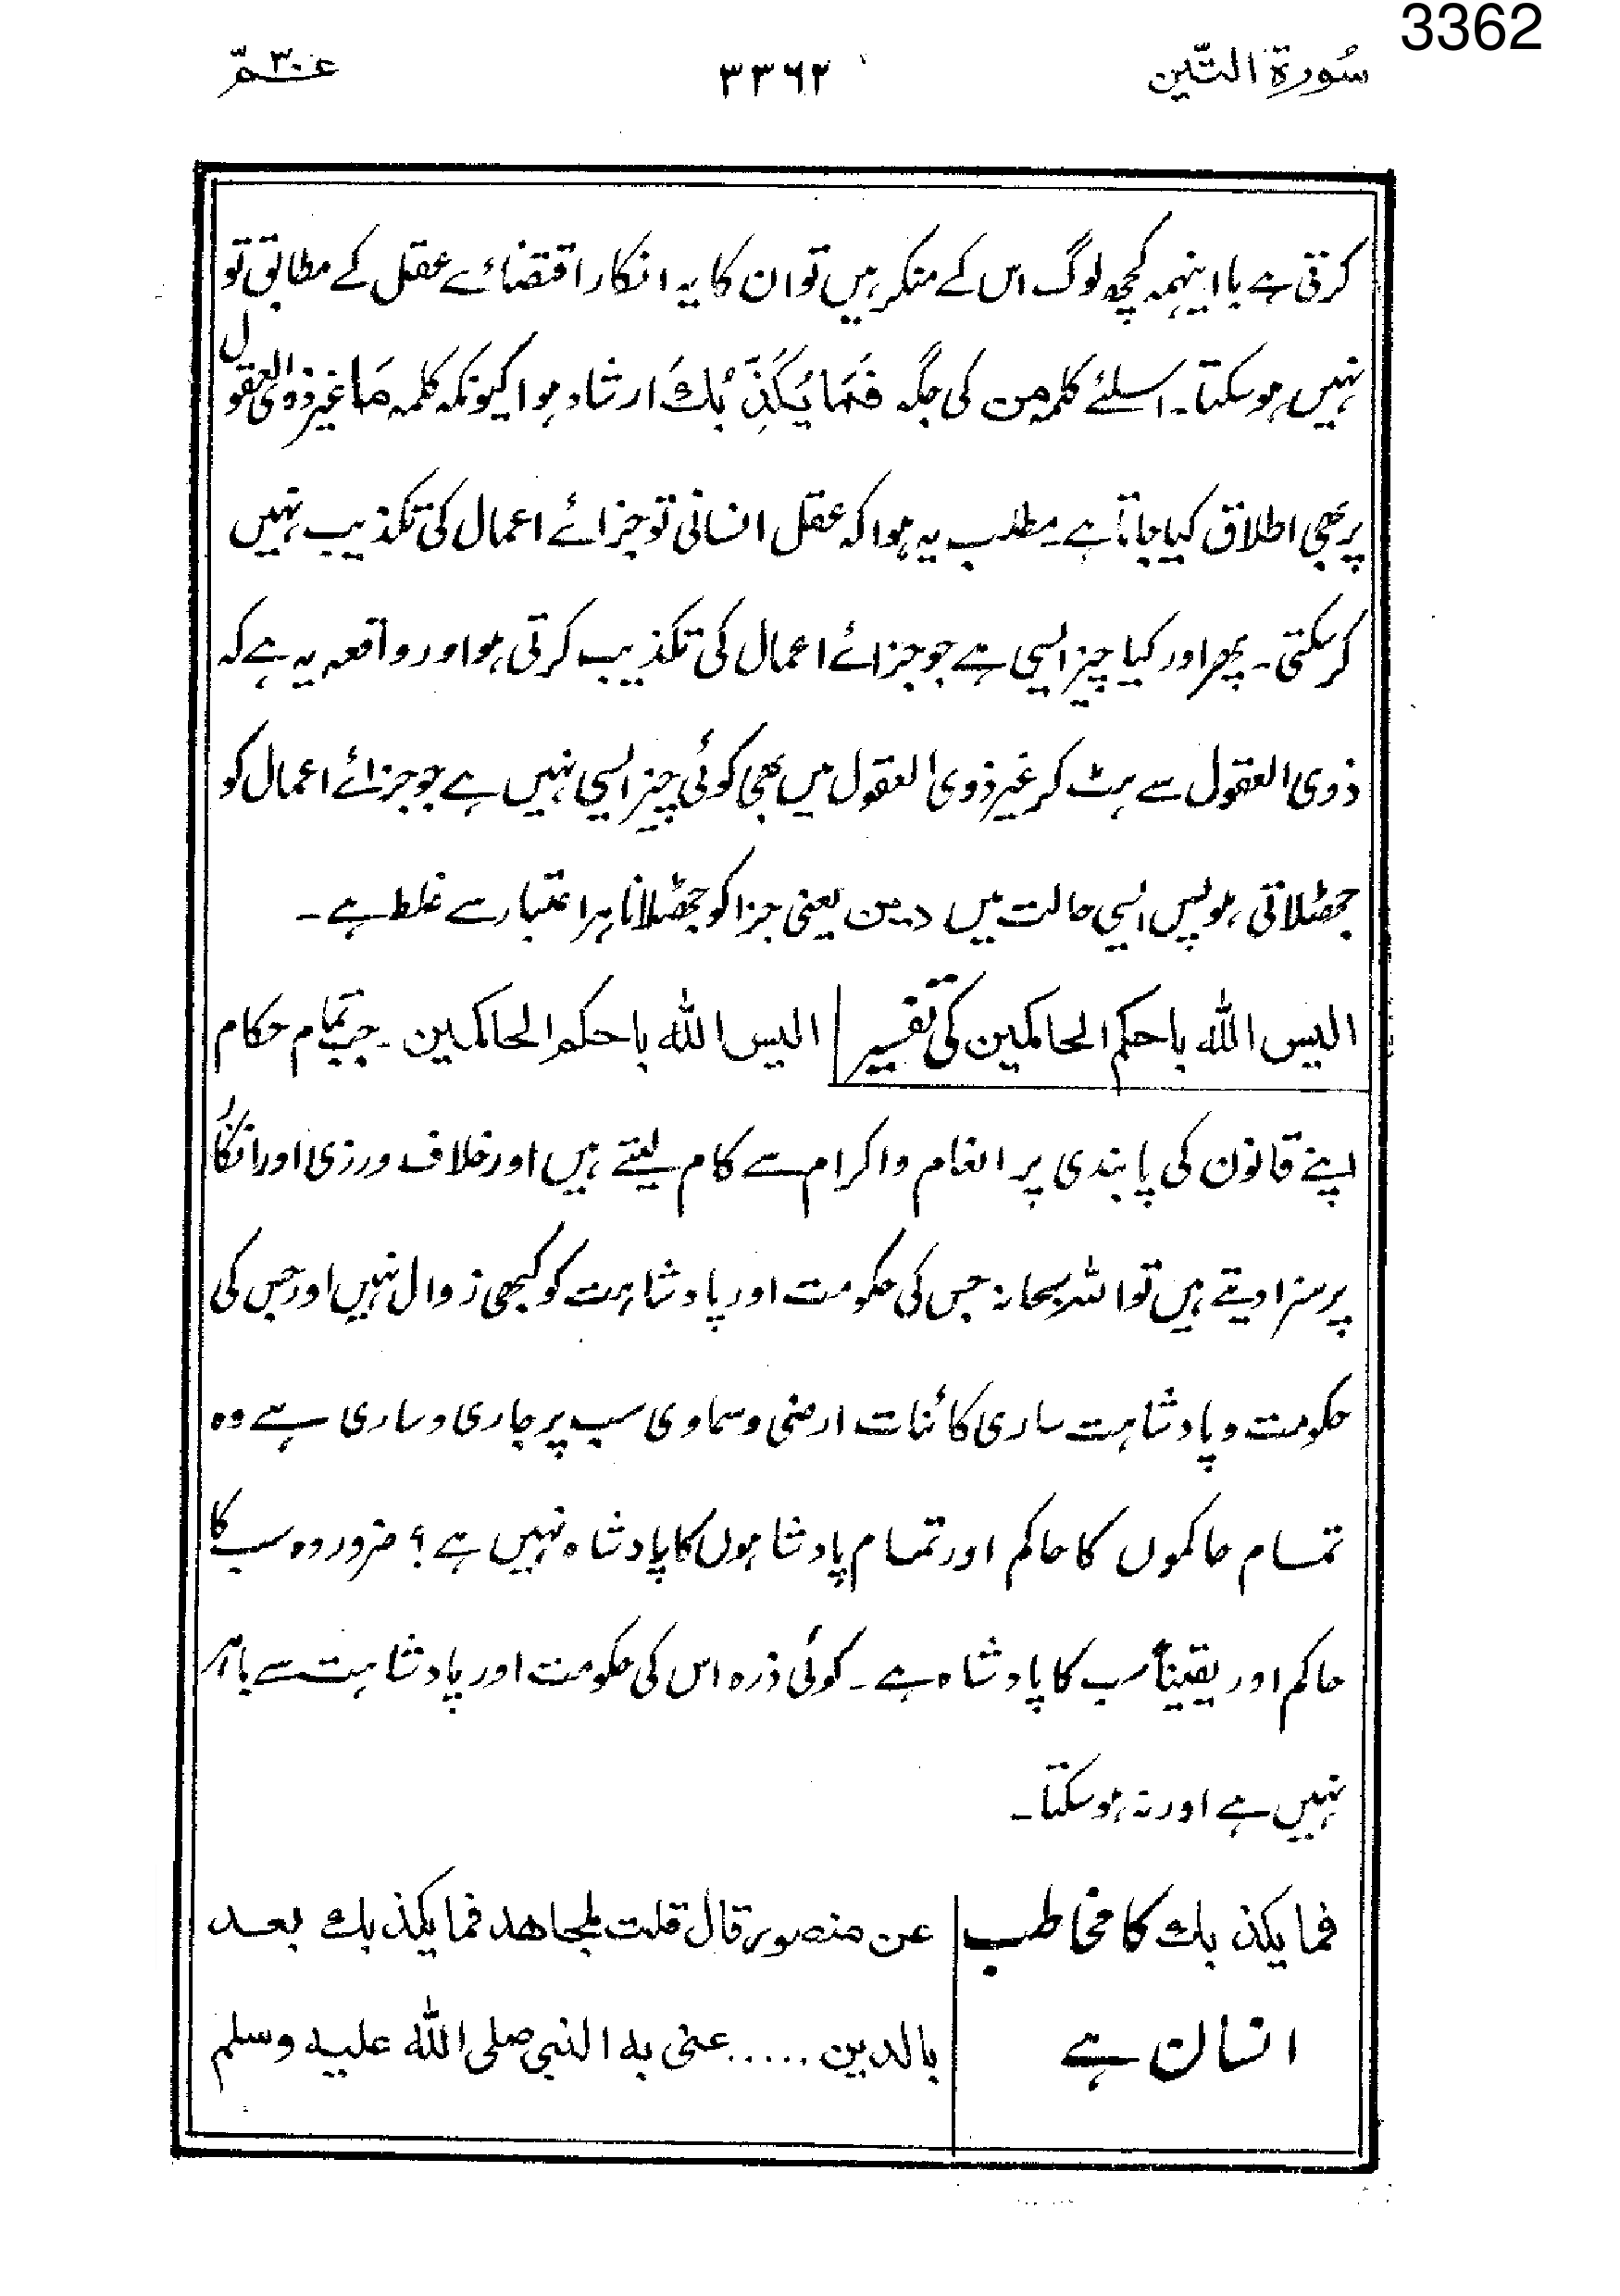 3362
سُورة التّين ٣٣٦٢ عمّ ٣٠
کرتی ہے با اینہمہ کچھ لوگ اس کے منکر ہیں تو ان کا یہ انکار اقتضائے عقل کے مطابق تو
نہیں ہو سکتا۔ اسلئے کلمہ من کی جگہ فَمَا يُكَذِّبُكَ ارشاد ہوا کیونکہ کلمہ مَا غیر ذوی العقول
پر بھی اطلاق کیا جاتا ہے۔ مطلب یہ ہوا کہ عقل انسانی تو جزائے اعمال کی تکذیب نہیں
کر سکتی۔ پھر اور کیا چیز ایسی ہے جو جزائے اعمال کی تکذیب کرتی ہو اور واقعہ یہ ہے کہ
ذوی العقول سے ہٹ کر غیر ذوی العقول میں بھی کوئی چیز ایسی نہیں ہے جو جزائے اعمال کو
جھٹلاتی ہو پس ایسی حالت میں دین یعنی جزا کو جھٹلانا ہر اعتبار سے غلط ہے۔
الیس اللہ باحکم الحاکمین کی تفسیر الیس اللہ باحکم الحاکمین۔ جب تمام حکام
اپنے قانون کی پابندی پر انعام و اکرام سے کام لیتے ہیں اور خلاف ورزی اور انکار
پر سزا دیتے ہیں تو اللہ سبحانہ جس کی حکومت اور پادشاہت کو کبھی زوال نہیں اور جس کی
حکومت و پادشاہت ساری کائنات ارضی و سماوی سب پر جاری و ساری ہے وہ
تمام حاکموں کا حاکم اور تمام پادشاہوں کا پادشاہ نہیں ہے؟ ضرور وہ سب کا
حاکم اور یقیناً سب کا پادشاہ ہے۔ کوئی ذرہ اس کی حکومت اور پادشاہت سے باہر
نہیں ہے اور نہ ہو سکتا۔
فما یکذبك کا مخاطب عن منصور قال قلت لمجاهد فما یکذبك بعد
انسان ہے بالدین ..... عنی به النبی صلی اللہ علیه وسلم